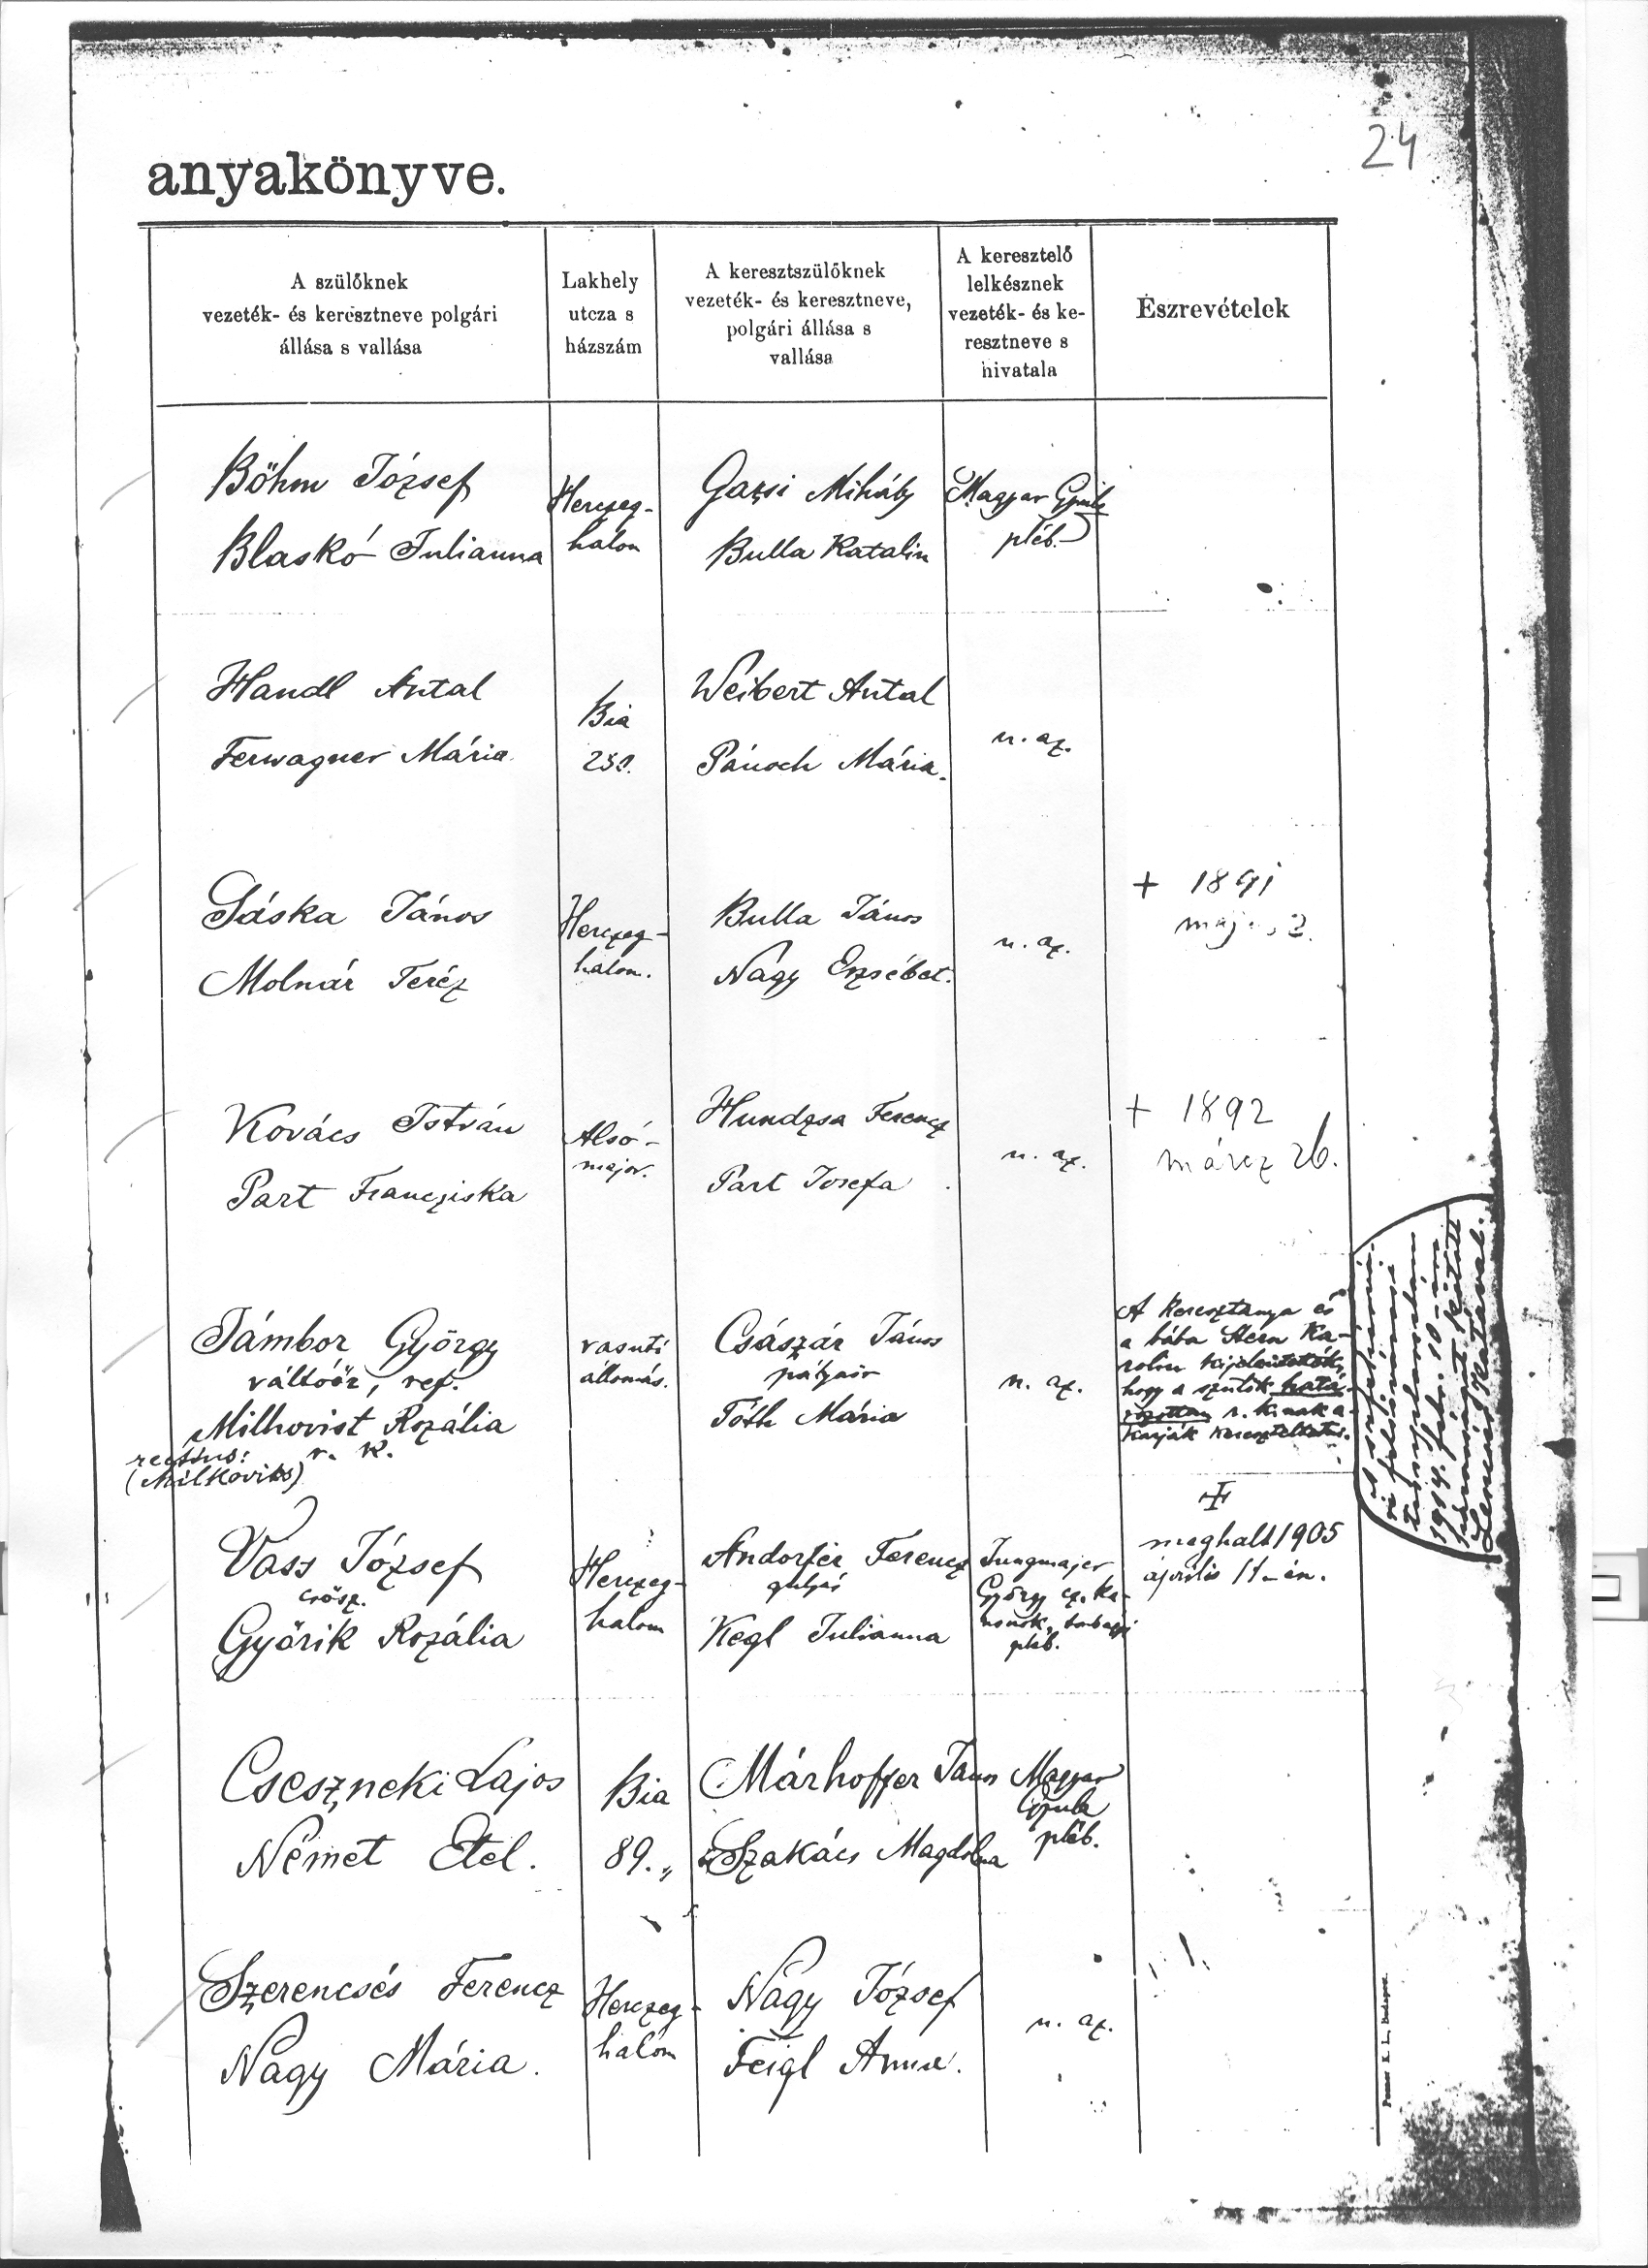 24
anyakönyve.
A szülőknek
vezeték- és keresztneve polgári
állása s vallása
Lakhely
utcza s
házszám
A keresztszülőknek
vezeték- és keresztneve,
polgári állása s
vallása
A keresztelő
lelkésznek
vezeték- és ke-
resztneve s
hivatala
Észrevételek
Böhm József
Blaskó Julianna
Herczeg-
halom
Gazsi Mihály
Bulla Katalin
Magyar Gyula
pléb.
Handl Antal
Ferwagner Mária
Bia
Weibert Antal
Pánoch Mária.
u. az.
Sáska János
Molnár Teréz
Herczeg-
halom.
Bulla János
Nagy Erzsébet.
u. az.
+ 1891
Kovács István
Part Francziska
Alsó-
major.
Hundzsa Ferencz
Part Josefa
u. az.
+ 1892
márcz 26.
Jámbor György
váltóőr, ref.
Milhovist Rozália
r. k.
rectius:
(Milkovits)
vasuti
állomás.
Császár János
pályaőr
Tóth Mária
u. az.
A keresztanya és
a bába Stern Ka-
rolin kijelentették,
hogy a szülők hatá-
rozottan r. k.nak a-
karják kereszteltetni.
1914. febr. 10-én
Vass József
csősz.
Győrik Rozália
Herczeg-
halom
Andorfer Ferencz
gulyás
Kegl Julianna
Jungmajer
György cz. ka-
nonok, torbágyi
pléb.
meghalt 1905
április 11-én.
Cseszneki Lajos
Német Etel.
Bia
89.
Márhoffer János
Szakács Magdolna
Magyar
Gyula
pléb.
Szerencsés Ferencz
Nagy Mária.
Herczeg-
halom
Nagy József
Feigl Anna.
u. az.